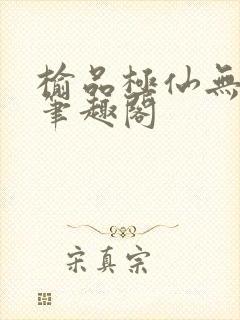 榆品極仙無
筆趣閣
宋真宗